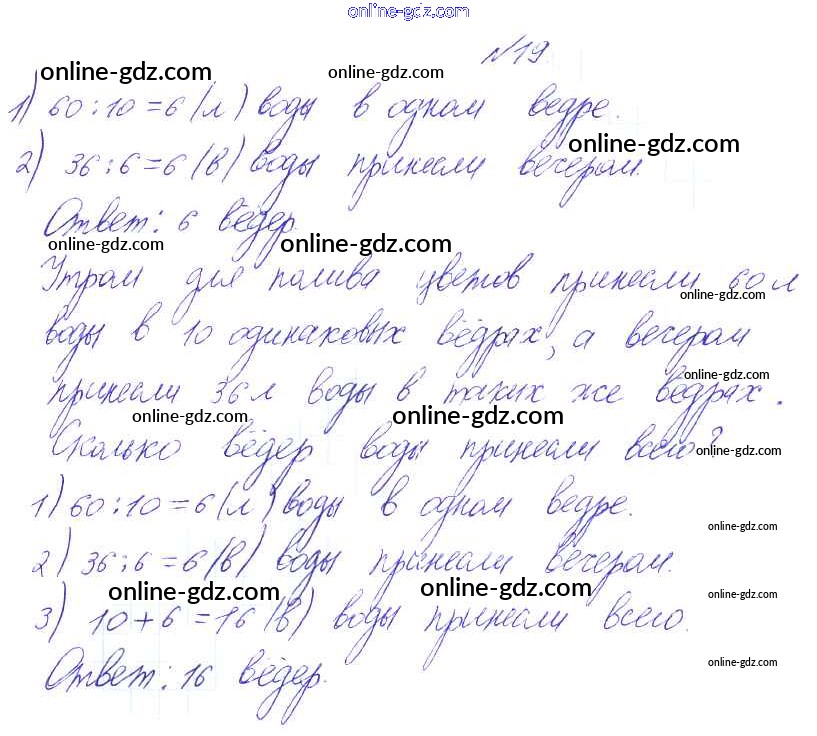 online-gdz.com
№19.
online-gdz.com online-gdz.com
1) 60:10=6 (л) воды в одном ведре.
online-gdz.com
2) 36:6=6 (в) воды принесли вечером.
Ответ: 6 вёдер.
online-gdz.com online-gdz.com
Утром для полива цветов принесли 60 л
online-gdz.com
воды в 10 одинаковых вёдрах, а вечером
online-gdz.com
принесли 36 л воды в таких же вёдрах.
online-gdz.com online-gdz.com
Сколько вёдер воды принесли всего?
online-gdz.com
1) 60:10=6 (л) воды в одном ведре.
online-gdz.com
2) 36:6=6 (в) воды принесли вечером.
online-gdz.com online-gdz.com online-gdz.com
3) 10+6=16 (в) воды принесли всего.
online-gdz.com
Ответ: 16 вёдер.